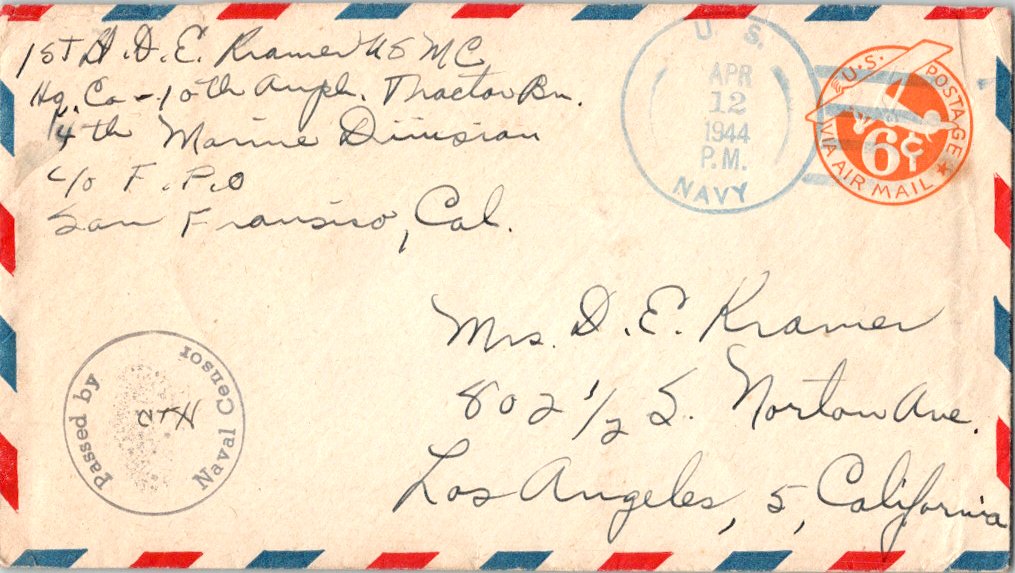 1st Lt. D. E. Kramer USMC
Hq. Co - 10th Amph. Tractor Bn.
4th Marine Division
c/o F.P.O
San Fransisco, Cal.
U. S.
APR
12
1944
P.M.
NAVY
U.S. POSTAGE
6¢
VIA AIR MAIL
Mrs. D. E. Kramer
802 1/2 S. Norton Ave.
Los Angeles, 5, California
Passed by
Naval Censor